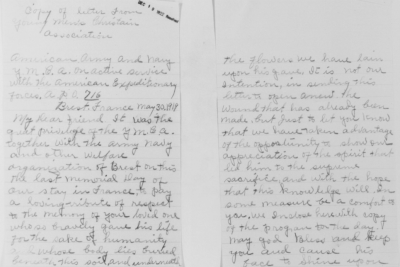 Copy of letter from
Young Mens Christian
Association
American Army and Navy
Y.M.C.A. on active service
with the American Expeditionary
Force, A P O 716
Brest France May 30, 1919
My dear friend It was the
great privilege of the Y M C A.
together with the army navy
and other welfare
organization of Brest on this
the last memorial day of
our stay in France, to pay
a loving tribute of respect
to the memory of your loved one
who so bravely gave his life
for the sake of humanity
whose body lies buried
beneath this soil, and underneath
the flowers we have lain
upon his grave It is not our
intention, in sending this
letter to open anew the
wound that has already been
made but just to let you know
that we have taken advantage
of the opportunity to show an
appreciation of the spirit that
led him to the supreme
sacrifice and with the hope
that this knowledge will in
some measure be a comfort to
you, we inclose herewith copy
of the program for the day.
May god Bless and keep
you and cause his
face to shine upon